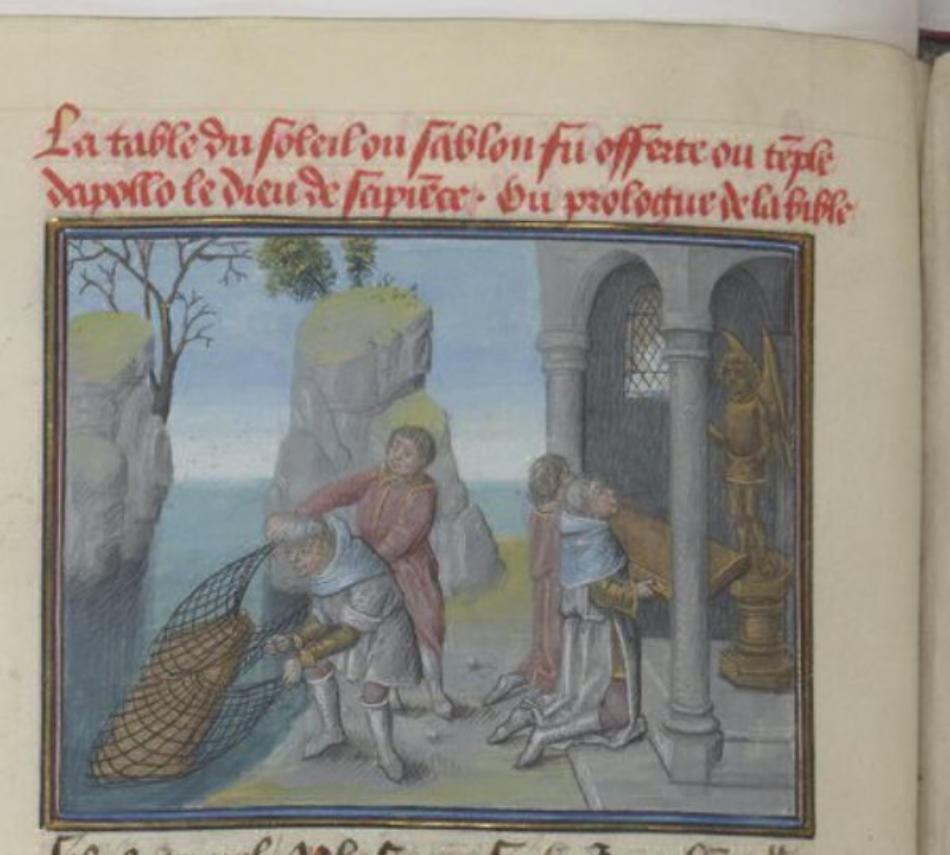 La table du soleil ou sablon fu offerte ou tẽple
dapollo le dieu de sapiẽce. Ou prologue de la bible